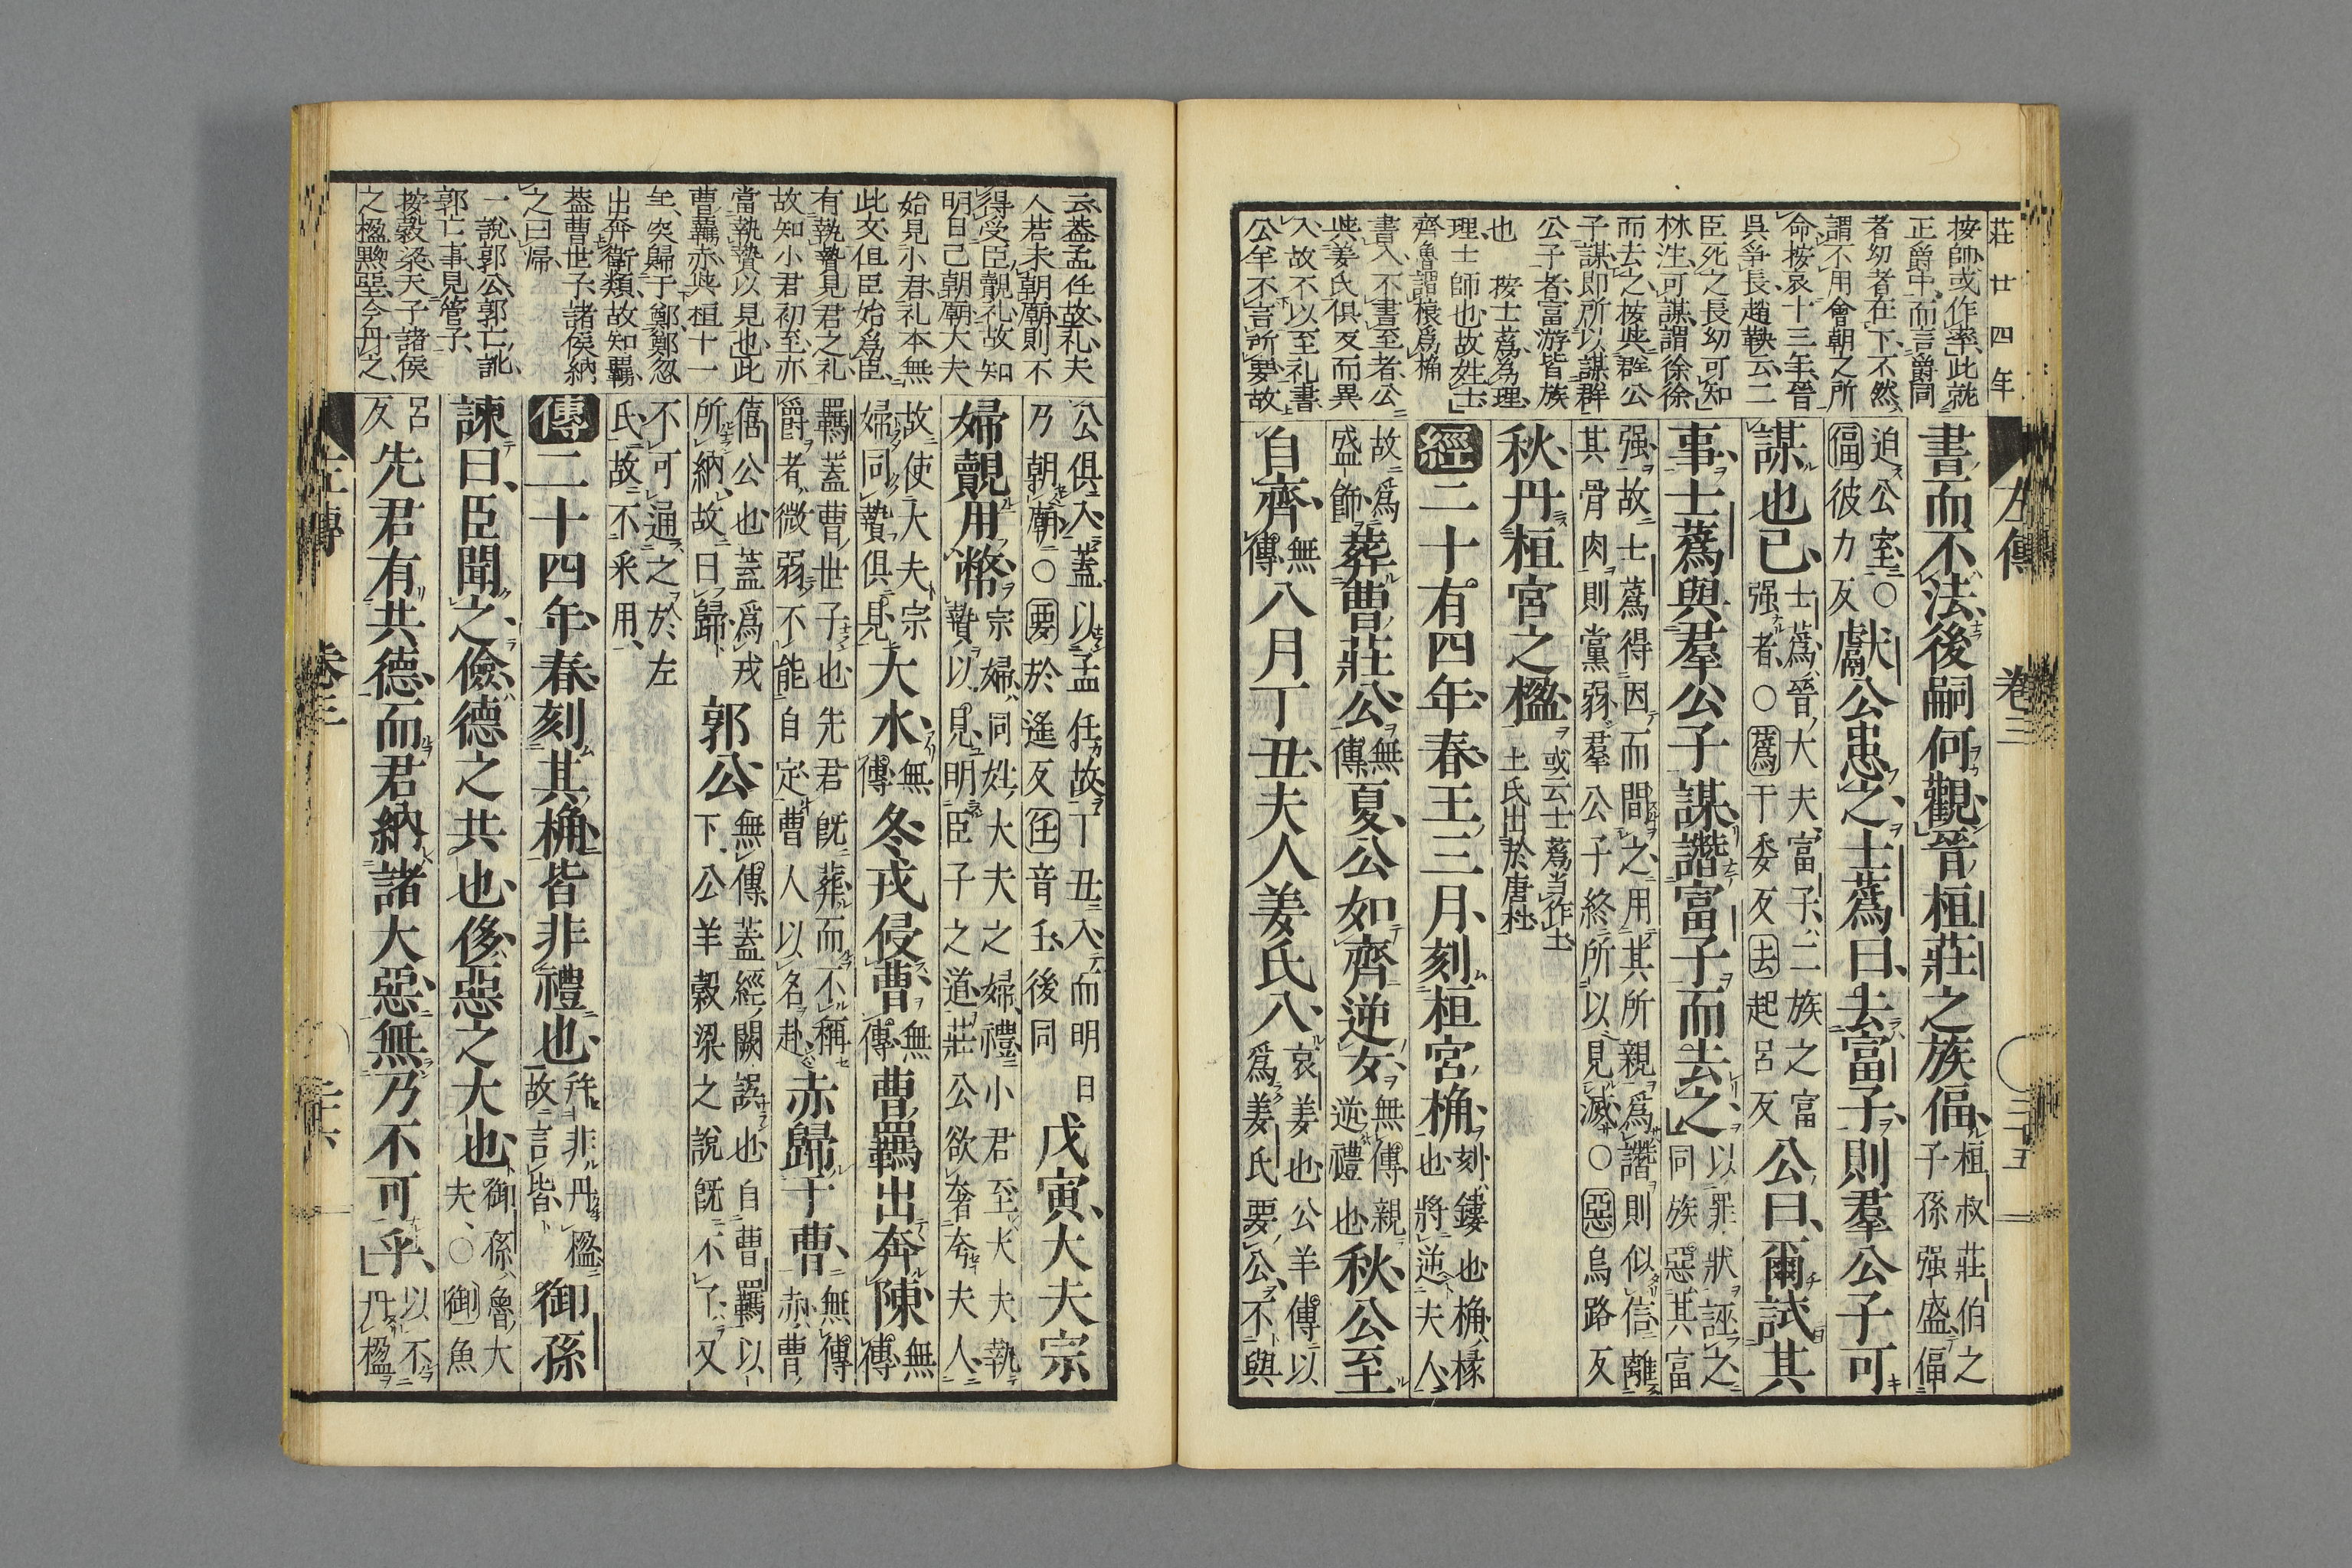 莊廿四年
按師或作率此就
正爵中而言爵同
者幼者在下不然
謂不用會朝之所
命按哀十三年晉
吳爭長趙鞅云二
臣死之長幼可知
林注可謀謂徐徐
而去之按與群公
子謀即所以謀群
公子者富游皆族
也 按士蔿爲理
理士師也故姓士
齊魯謂榱爲桷
書入不書至者公
與姜氏俱反而異
入故不以至礼書
公羊不言所要故
左傳 卷三 三十五
書而不法後嗣何觀晉桓莊之族偪桓叔莊伯之子孫强盛偪
迫公室○偪彼力反獻公患之士蔿曰去富子則羣公子可
謀也已士蔿晉大夫富子二族之富强者○蔿于委反去起呂反公曰爾試其
事士蔿與羣公子謀譖富子而去之以罪狀誣之同族惡其富
强故士蔿得因而間之用其所親爲譖則似信離其骨肉則黨弱羣公子終所以見滅○惡烏路反
秋丹桓宮之楹或云士蔿當作士土氏出於唐杜
經二十有四年春王三月刻桓宮桷刻鏤也桷椽也將逆夫人
故爲盛飾葬曹莊公無傳夏公如齊逆女無傳親逆禮也秋公至
自齊無傳八月丁丑夫人姜氏入哀姜也公羊傳以爲姜氏要公不與
云蓋孟任故礼夫
人若未朝廟則不
得受臣覿礼故知
明日己朝廟大夫
始見小君礼本無
此文但臣始爲臣
有執贄見君之礼
故知小君初至亦
當執贄以見也此
曹羈赤與桓十一
年突歸于鄭鄭忽
出奔衛類故知羈
蓋曹世子諸侯納
之曰帰
一說郭公郭亡訛
郭亡事見管子
按穀梁天子諸侯
之楹黝堊今丹之
公俱入蓋以孟任故丁丑入而明日乃朝廟○要於遙反任音壬後同戊寅大夫宗
婦覿用幣宗婦同姓大夫之婦禮小君至大夫執贄以見明臣子之道莊公欲奢夸夫人
故使大夫宗婦同贄俱見大水無傳冬戎侵曹無傳曹羈出奔陳無傳
羈蓋曹世子也先君旣葬而不稱爵者微弱不能自定曹人以名赴赤歸于曹無傳赤曹
僖公也蓋爲戎所納故曰歸郭公無傳蓋經闕誤也自曹羈以下公羊穀梁之說旣不了又
不可通之於左氏故不采用
傳二十四年春刻其桷皆非禮也幷非丹楹故言皆御孫
諫曰臣聞之儉德之共也侈惡之大也御孫魯大夫○御魚
呂反先君有共德而君納諸大惡無乃不可乎以不丹楹
左傳 卷三